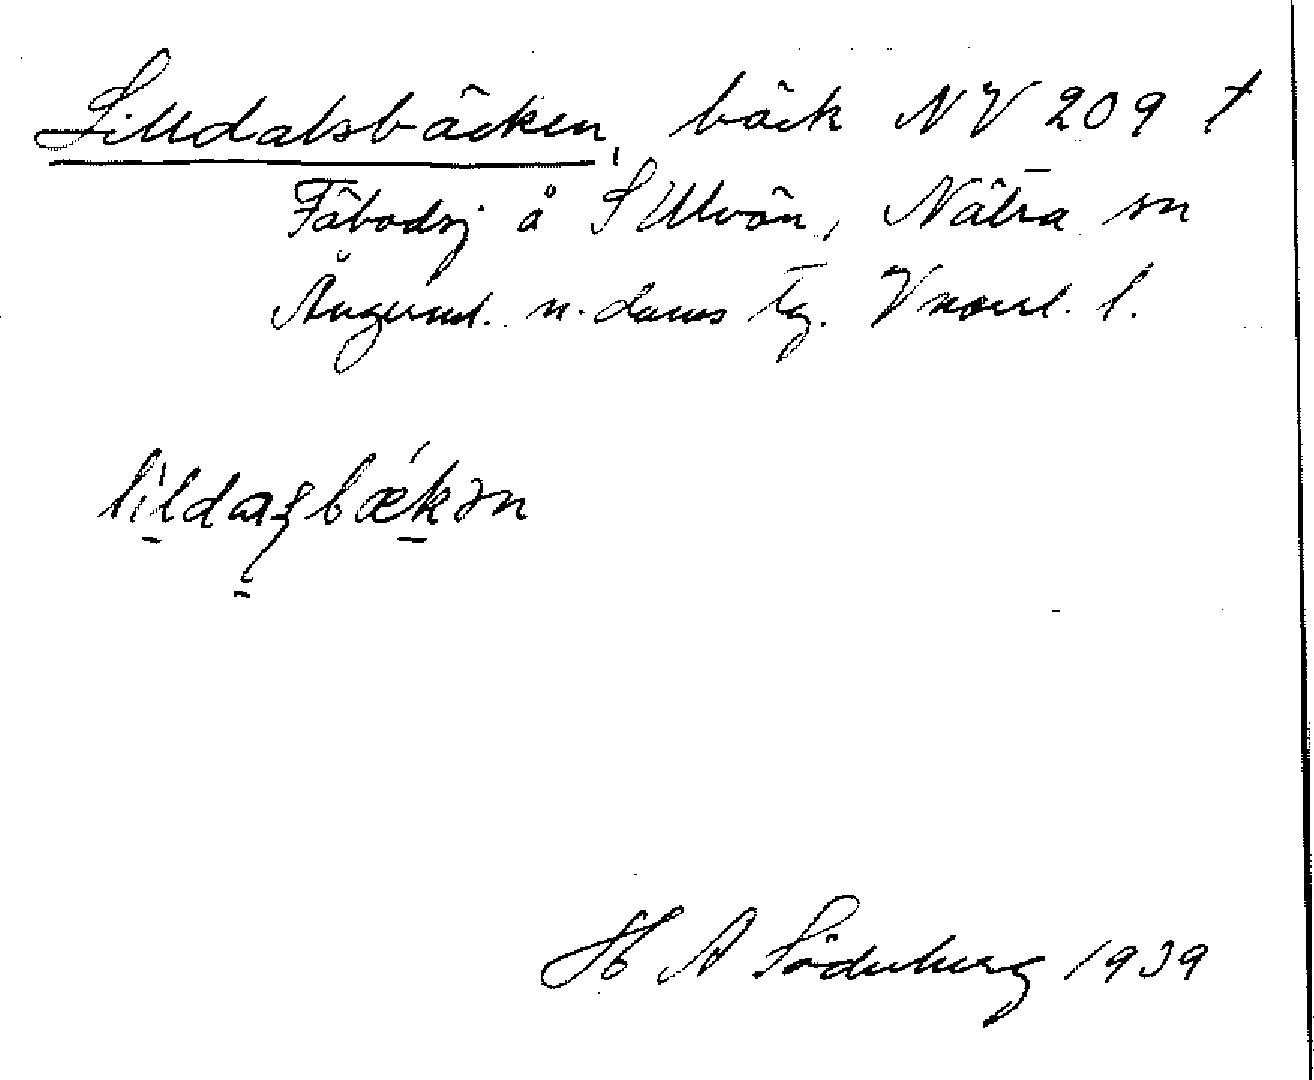 Lilldalsbäcken, bäck NV 209 †
Fäbodsj å S Ulvön, Nätra sn
Ångerml. n. doms tg. Vnorrl. l.
lildaʂbækən
H A Söderberg 1939